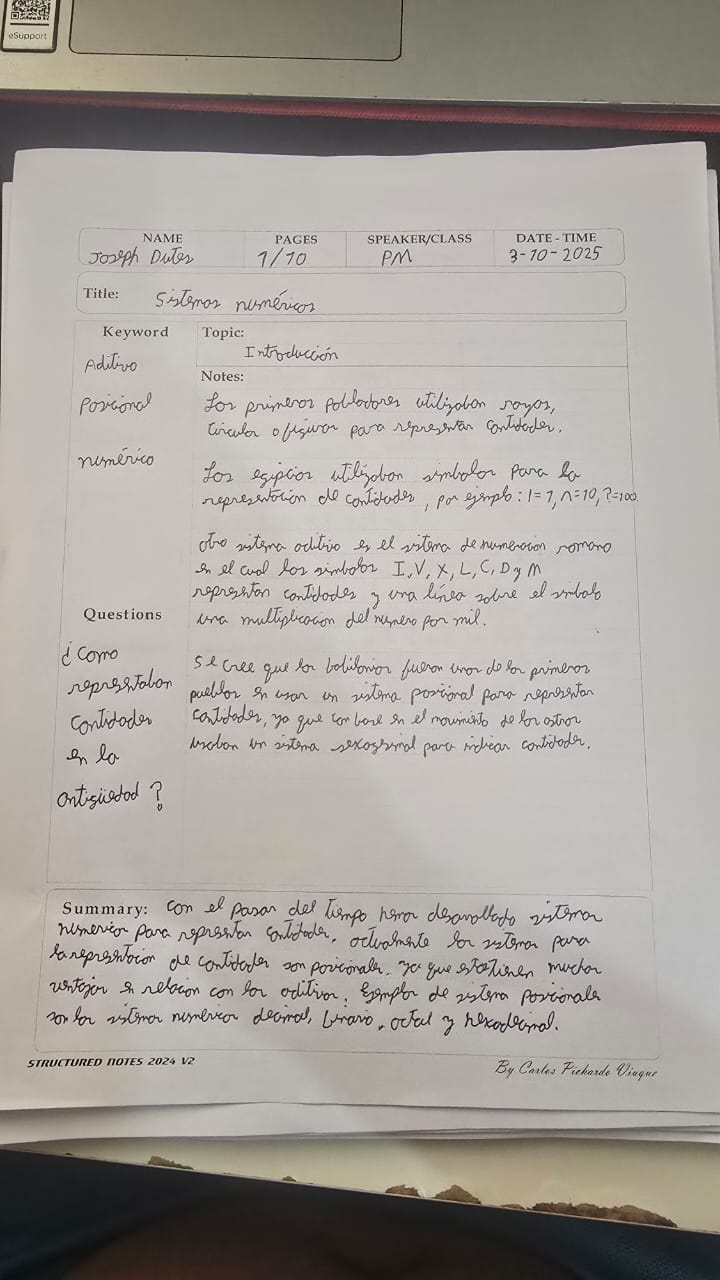 eSupport
NAME
PAGES
SPEAKER/CLASS
DATE - TIME
Joseph
1/10
PM
3-10-2025
Title: Sistemas numéricos
Keyword
Topic:
Introducción
Aditivo
Posicional
numérico
Notes:
Los primeros pobladores utilizaban rayas,
circulos o figuras para representar cantidades.
Los egipcios utilizaban simbolos para la
representación de cantidades, por ejemplo: I=1, ∩=10, ?=100
otro sistema aditivo es el sistema de numeracion romano
en el cual los simbolos I, V, X, L, C, D y M
representan cantidades y una línea sobre el simbolo
una multiplicacion del numero por mil.
Se cree que los babilonios fueron unos de los primeros
pueblos en usar un sistema posicional para representar
cantidades, ya que con base en el movimiento de los astros
usaban un sistema para indicar cantidades.
Questions
¿Como
representaban
cantidades
en la
antigüedad?
Summary: Con el pasar del tiempo hemos desarrollado sistemas
numericos para representar cantidades. actualmente los sistemas para
la representacion de cantidades son posicionales. ya que estos tienen muchas
ventajas en relacion con los aditivos. Ejemplos de sistema posicionales
son los sistemas numericos decimal, binario, octal y hexadecimal.
STRUCTURED NOTES 2024 V2
By Carlos Pichardo Viuque